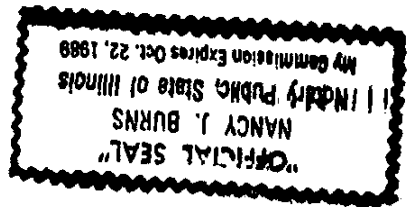 "OFFICIAL SEAL"
NANCY J. BURNS
Notary Public, State of Illinois
My Commission Expires Oct. 22, 1989